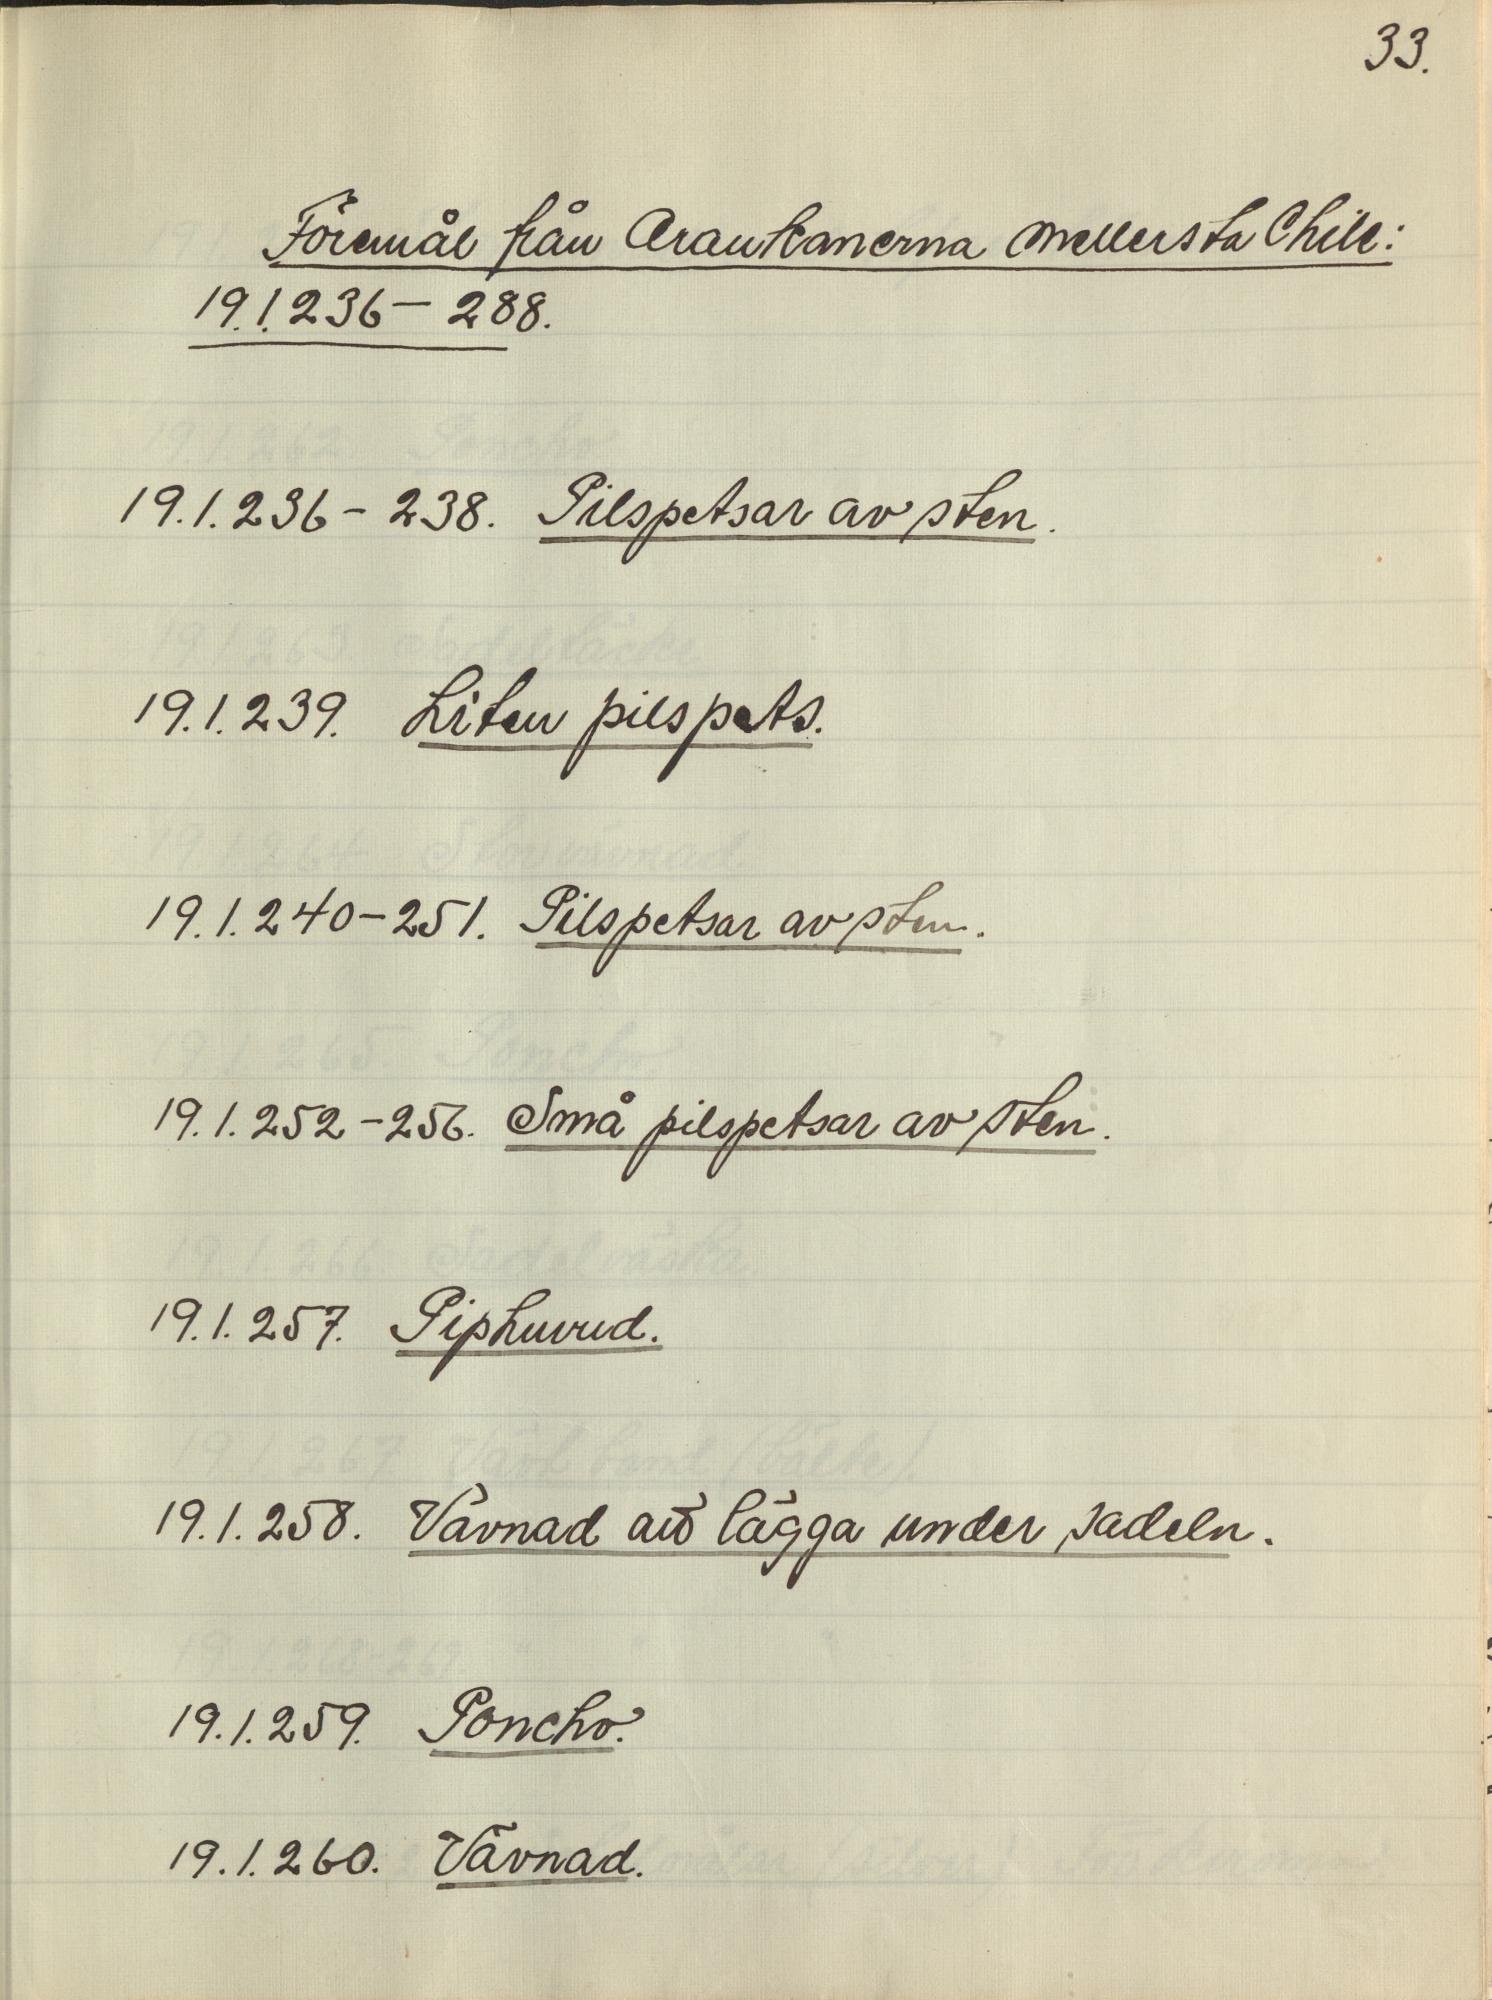 33.
Föremål från Araukanerna mellersta Chile:
19.1.236 – 288.
19.1.236 – 238. Pilspetsar av sten.
19.1.239. Liten pilspets.
19.1.240 – 251. Pilspetsar av sten.
19.1.252 – 256. Små pilspetsar av sten.
19.1.257. Piphuvud.
19.1.258. Vävnad att lägga under sadeln.
19.1.259. Poncho.
19.1.260. Vävnad.